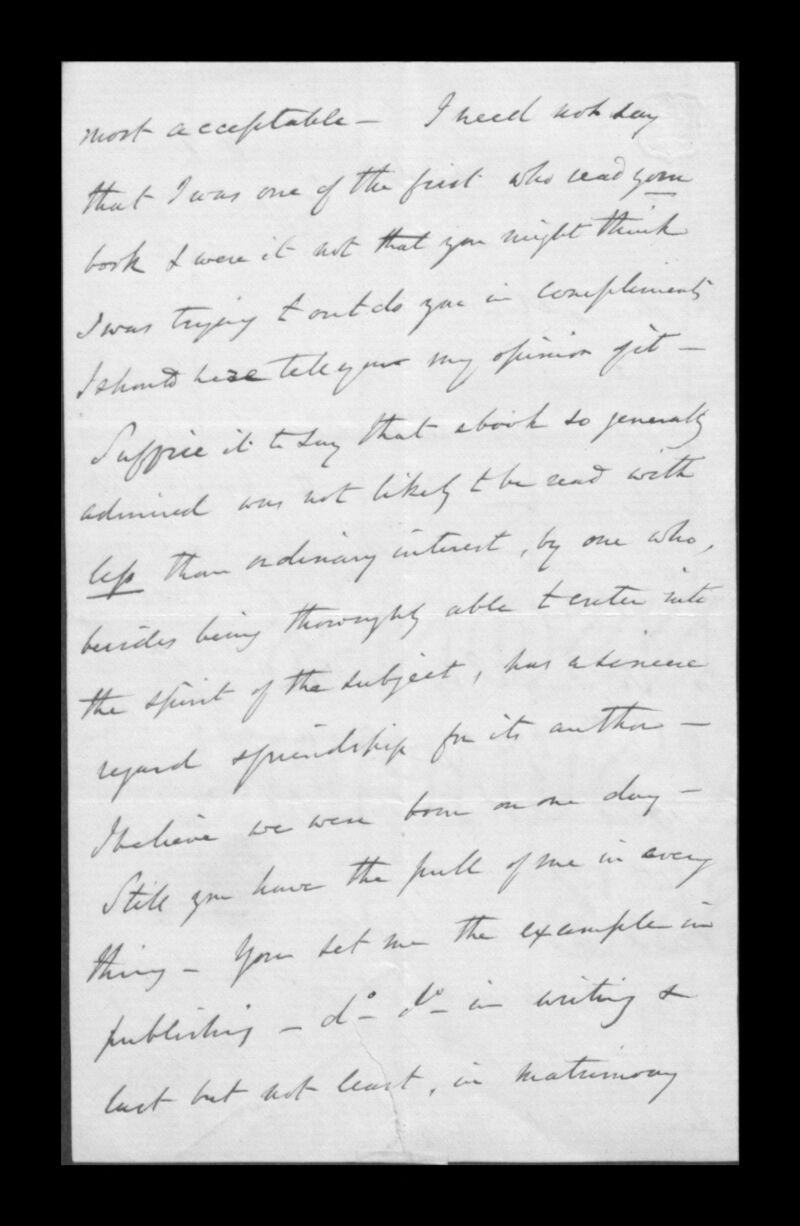 most acceptable — I need not say
that I was one of the first who read your
book & were it not that you might think
I was trying to outdo you in compliments
I should here tell you my opinion of it —
Suffice it to say that a book so generally
admired was not likely to be read with
less than ordinary interest, by one who,
besides being thoroughly able to enter into
the spirit of the subject, has a sincere
regard & friendship for its author —
I believe we were born on one day —
Still you have the pull of me in every
thing — You set me the example in
publishing — do — do — in writing &
last but not least, in matrimony